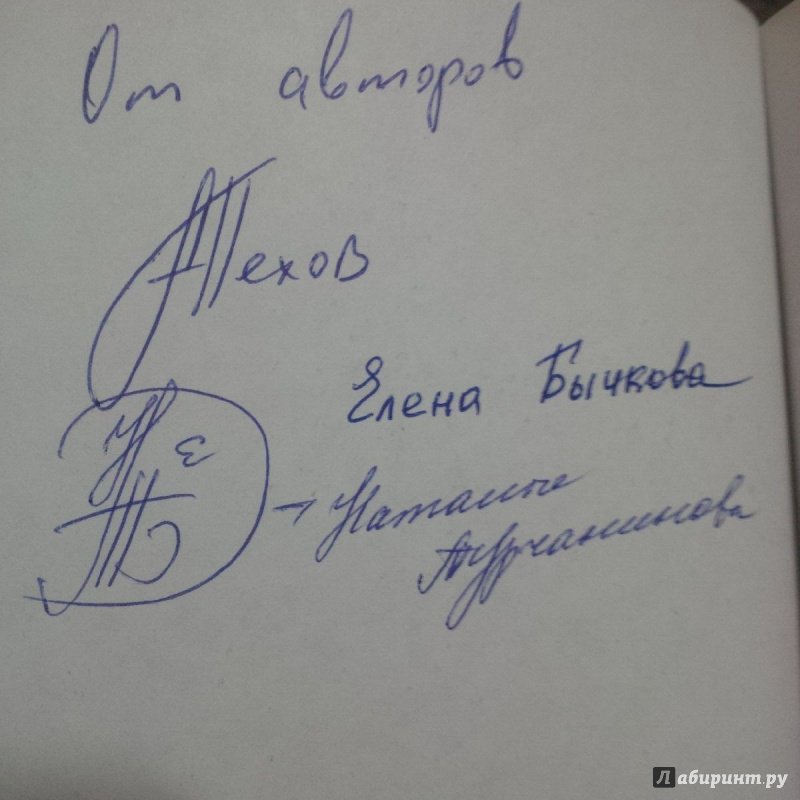 От авторов
Техов
Елена Бычкова
Н Е
Т Б
→ Наталья
Турчанинова
Лабиринт.ру